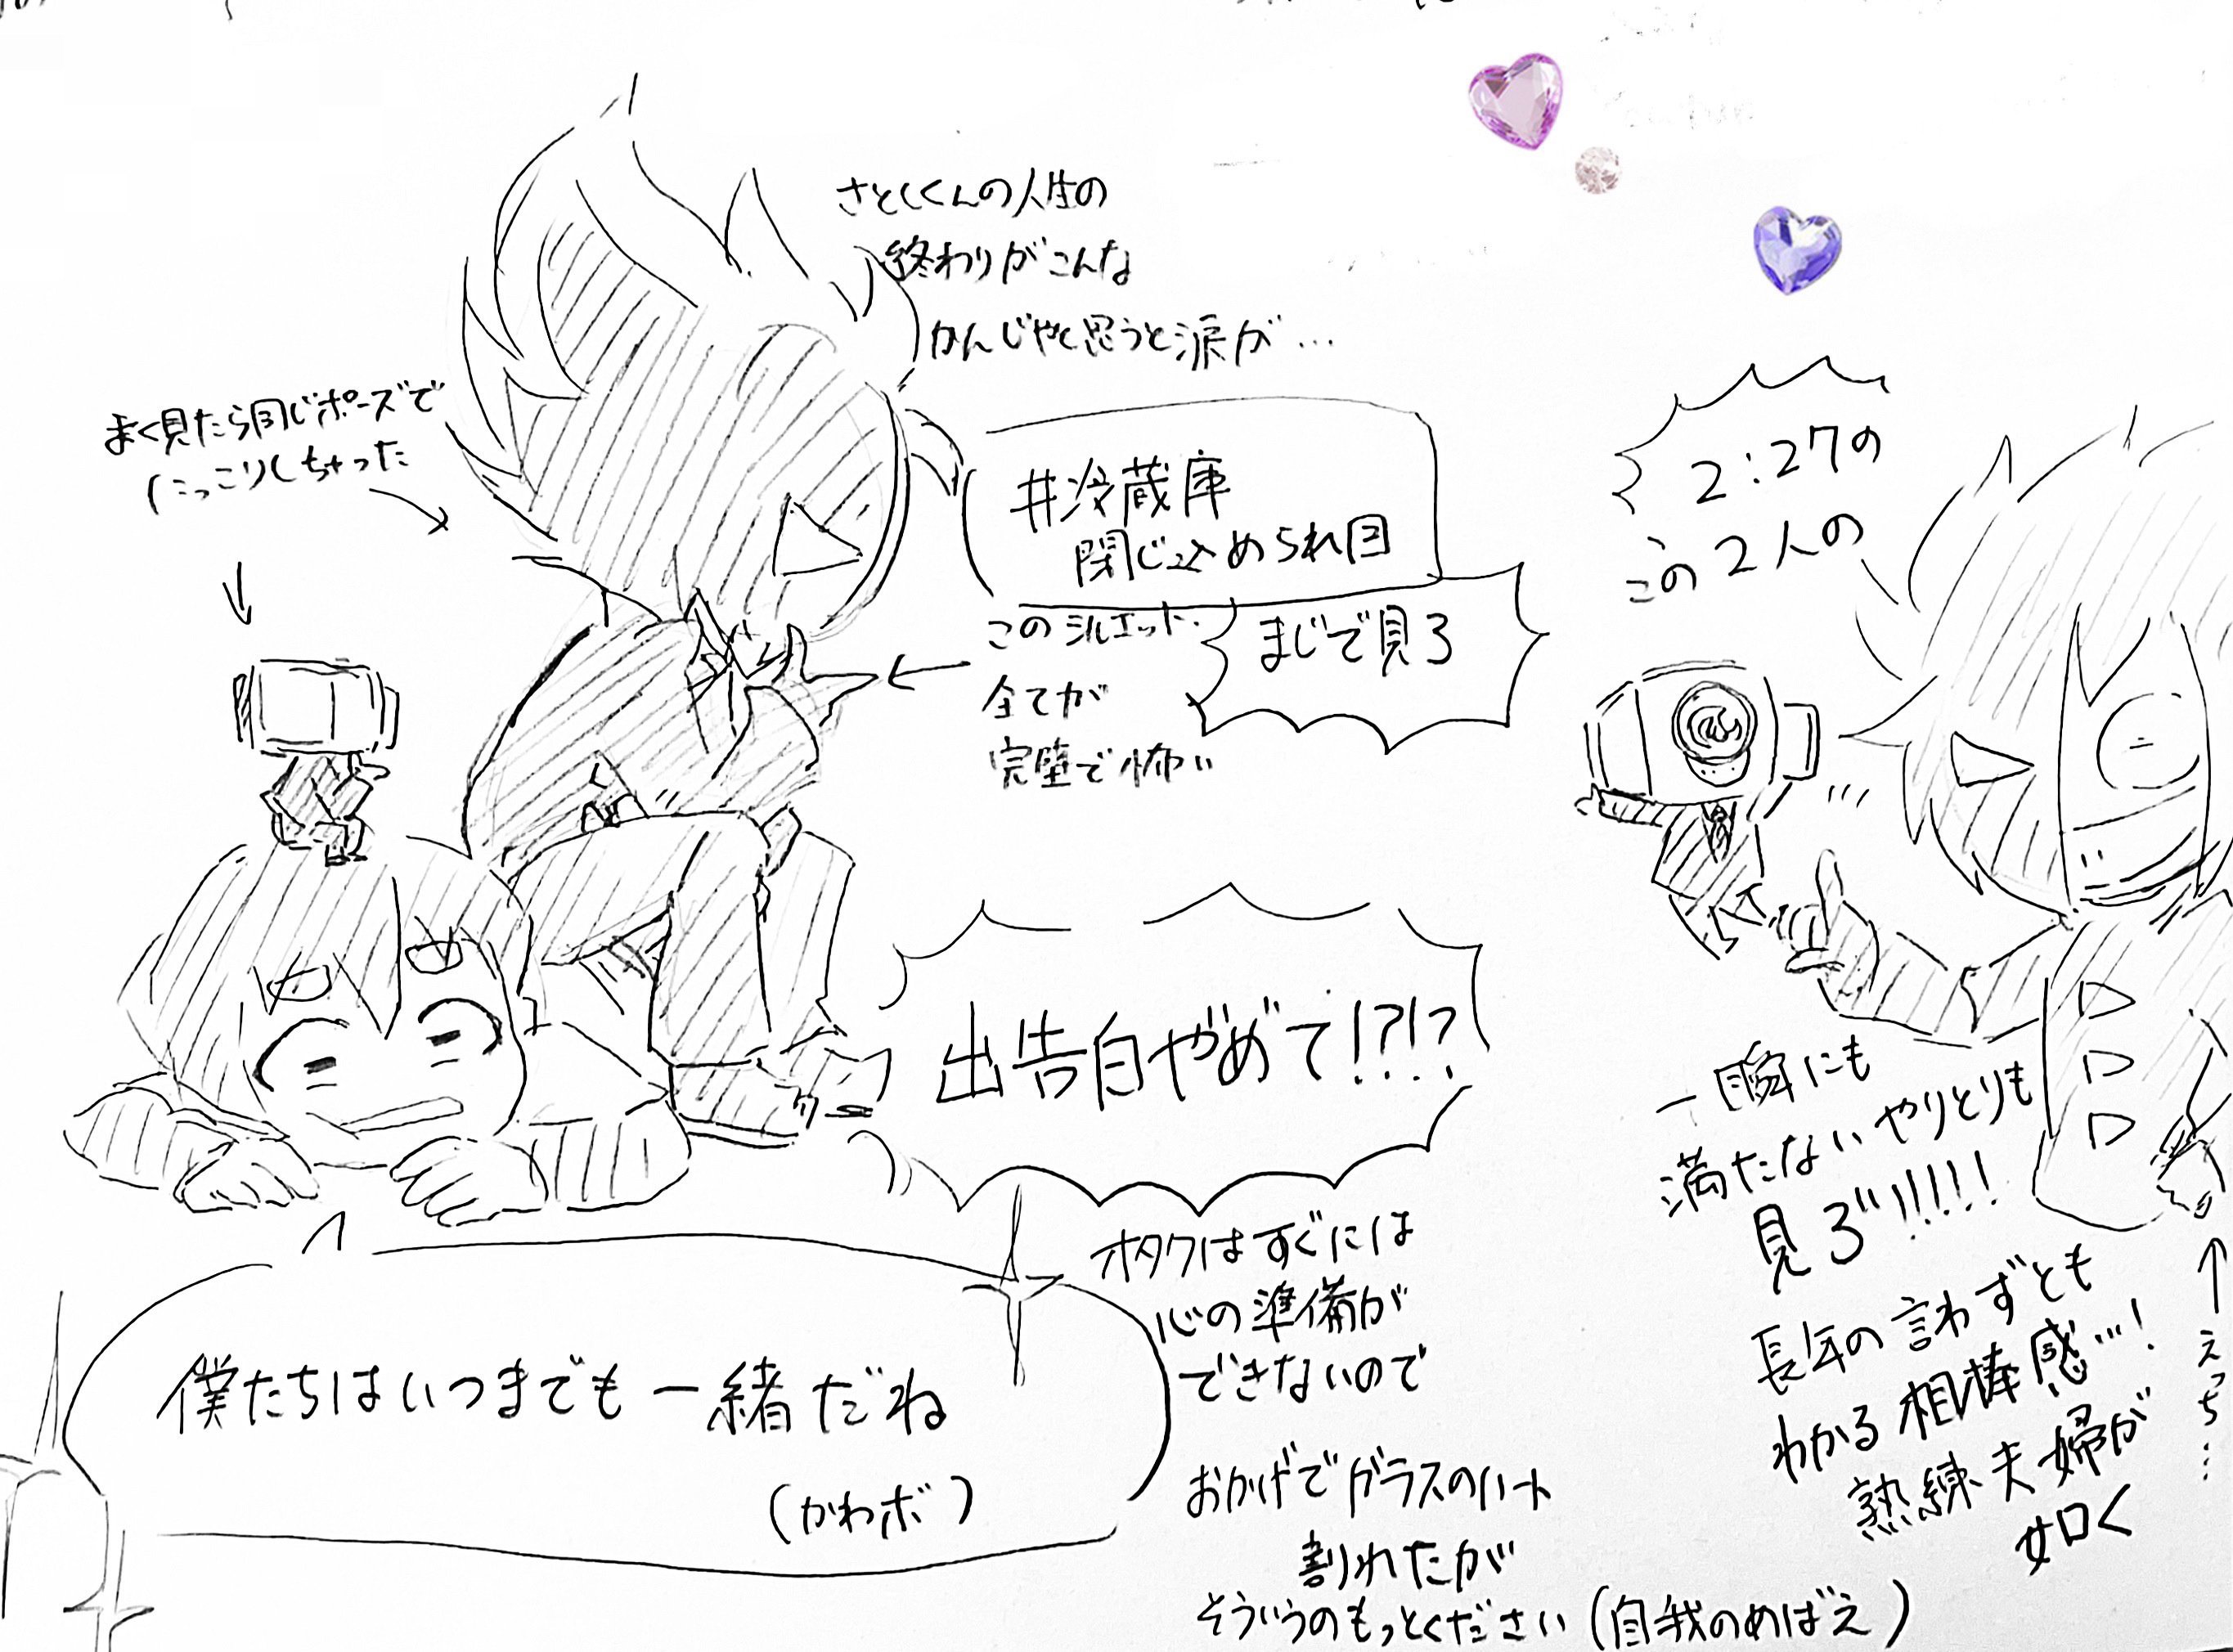 さとしくんの人生の
終わりがこんな
かんじやと思うと涙が…
よく見たら同じポーズで
にっこりしちゃった
#冷蔵庫
閉じ込められ回
まじで見ろ
このシルエット、
全てが
完璧で怖い
出告白やめて!?!?
オタクはすぐには
心の準備が
できないので
おかげでガラスのハート
割れたが
そういうのもっとください(自我のめばえ)
僕たちはいつまでも一緒だね
(かわボ)
2:27の
この2人の
一瞬にも
満たないやりとりも
見ろ!!!!!!
長年の言わずとも
わかる相棒感…!
熟練夫婦が
如く
↑えっち…